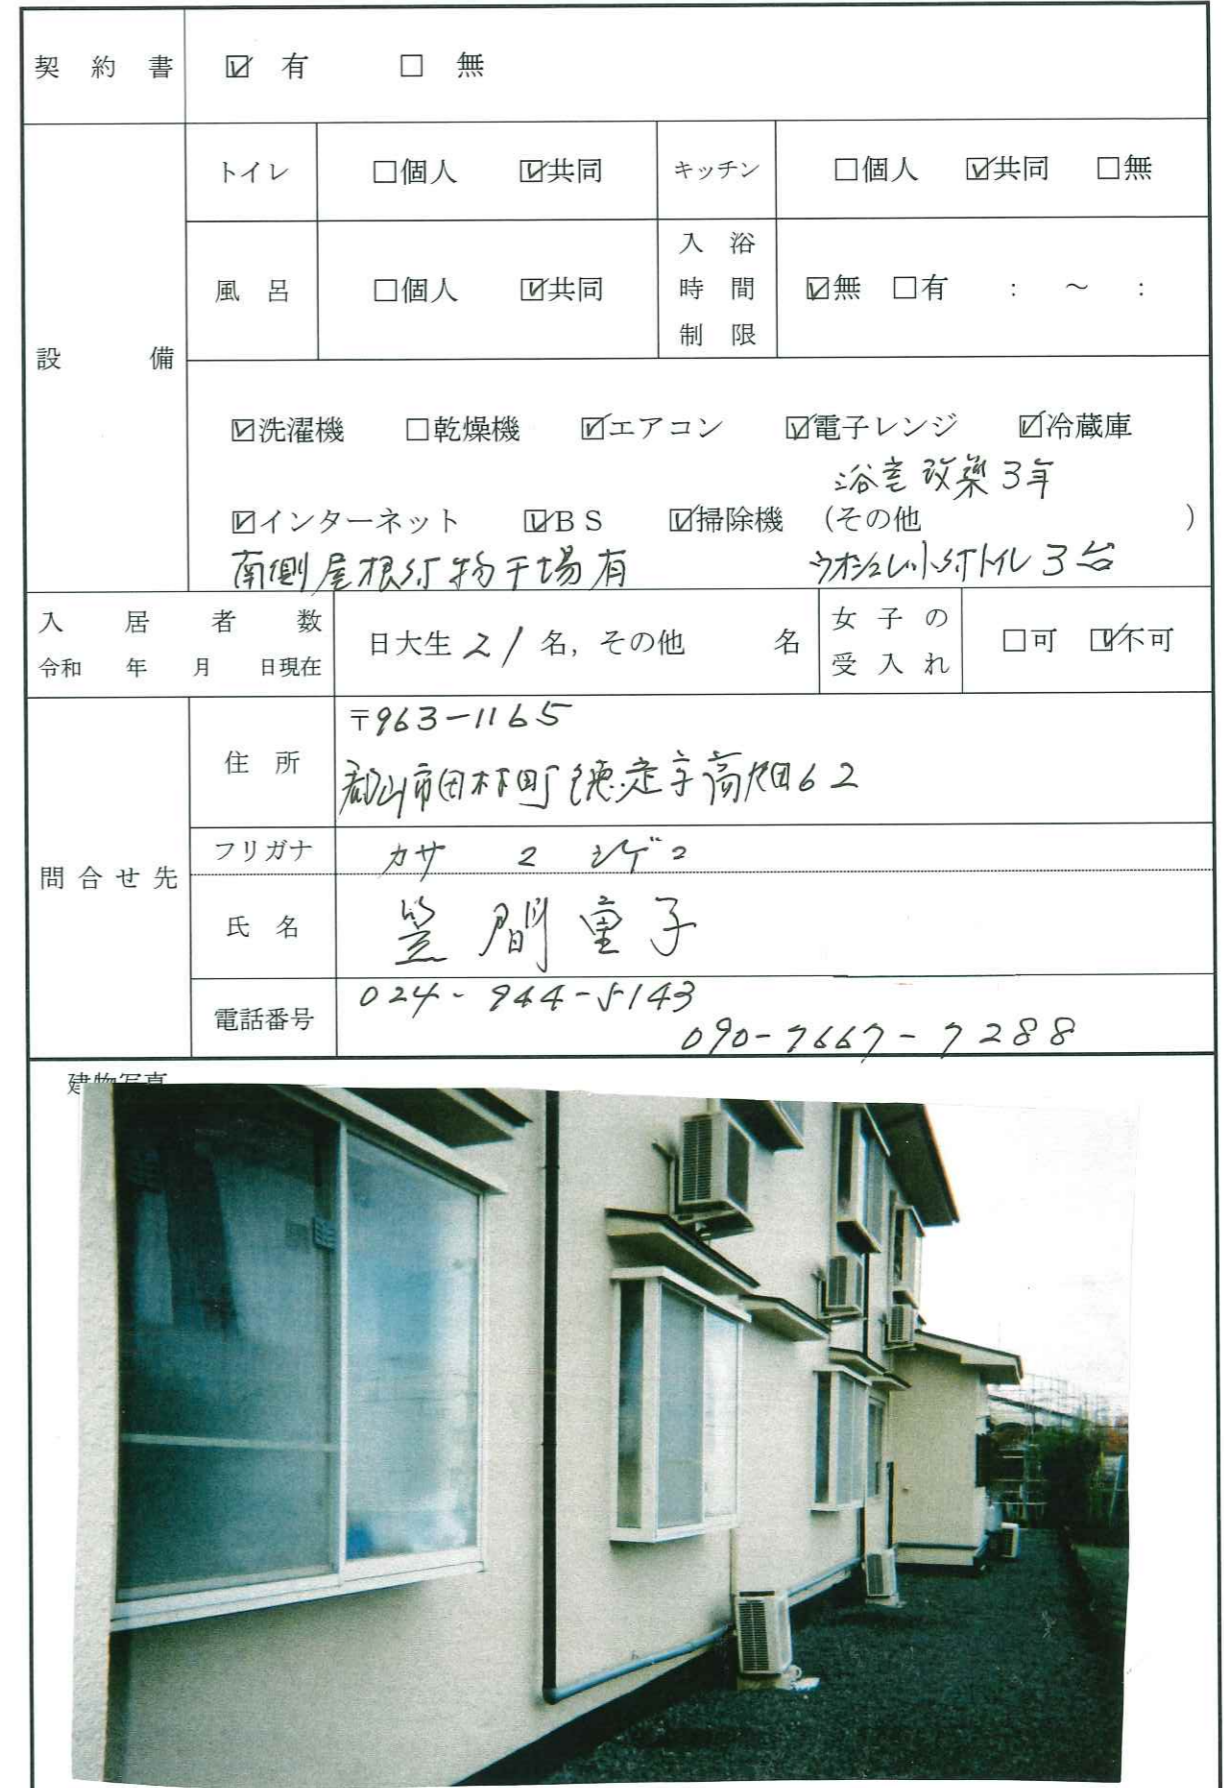 契約書 ☑有 □無
設備
トイレ □個人 ☑共同 キッチン □個人 ☑共同 □無
風呂 □個人 ☑共同 入浴時間制限 ☑無 □有 : ～ :
☑洗濯機 □乾燥機 ☑エアコン ☑電子レンジ ☑冷蔵庫
浴室改築3年
☑インターネット ☑BS ☑掃除機 (その他 )
南側屋根付物干場有 トイレ3台
入居者数
令和 年 月 日現在
日大生21名, その他 名
女子の受入れ □可 ☑不可
問合せ先
住所 〒963-1165
郡山市田村町徳定字高畑62
フリガナ カサマ シゲコ
氏名 笠間重子
電話番号 024-944-5143
090-7667-7288
建物写真